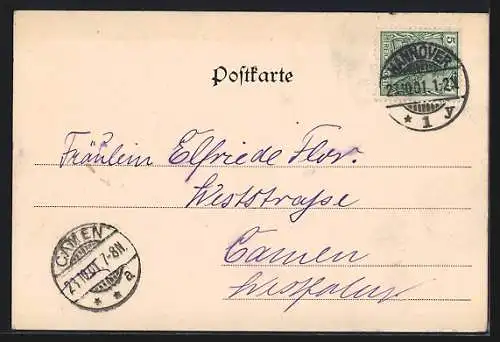 5
HANNOVER
23.10.01. 1-2N
* 1 y
Postkarte
Fräulein Elfriede Flor.
Weststrasse
Camen
Westfalen
CAMEN
23.10.01 7-8N.
* * a